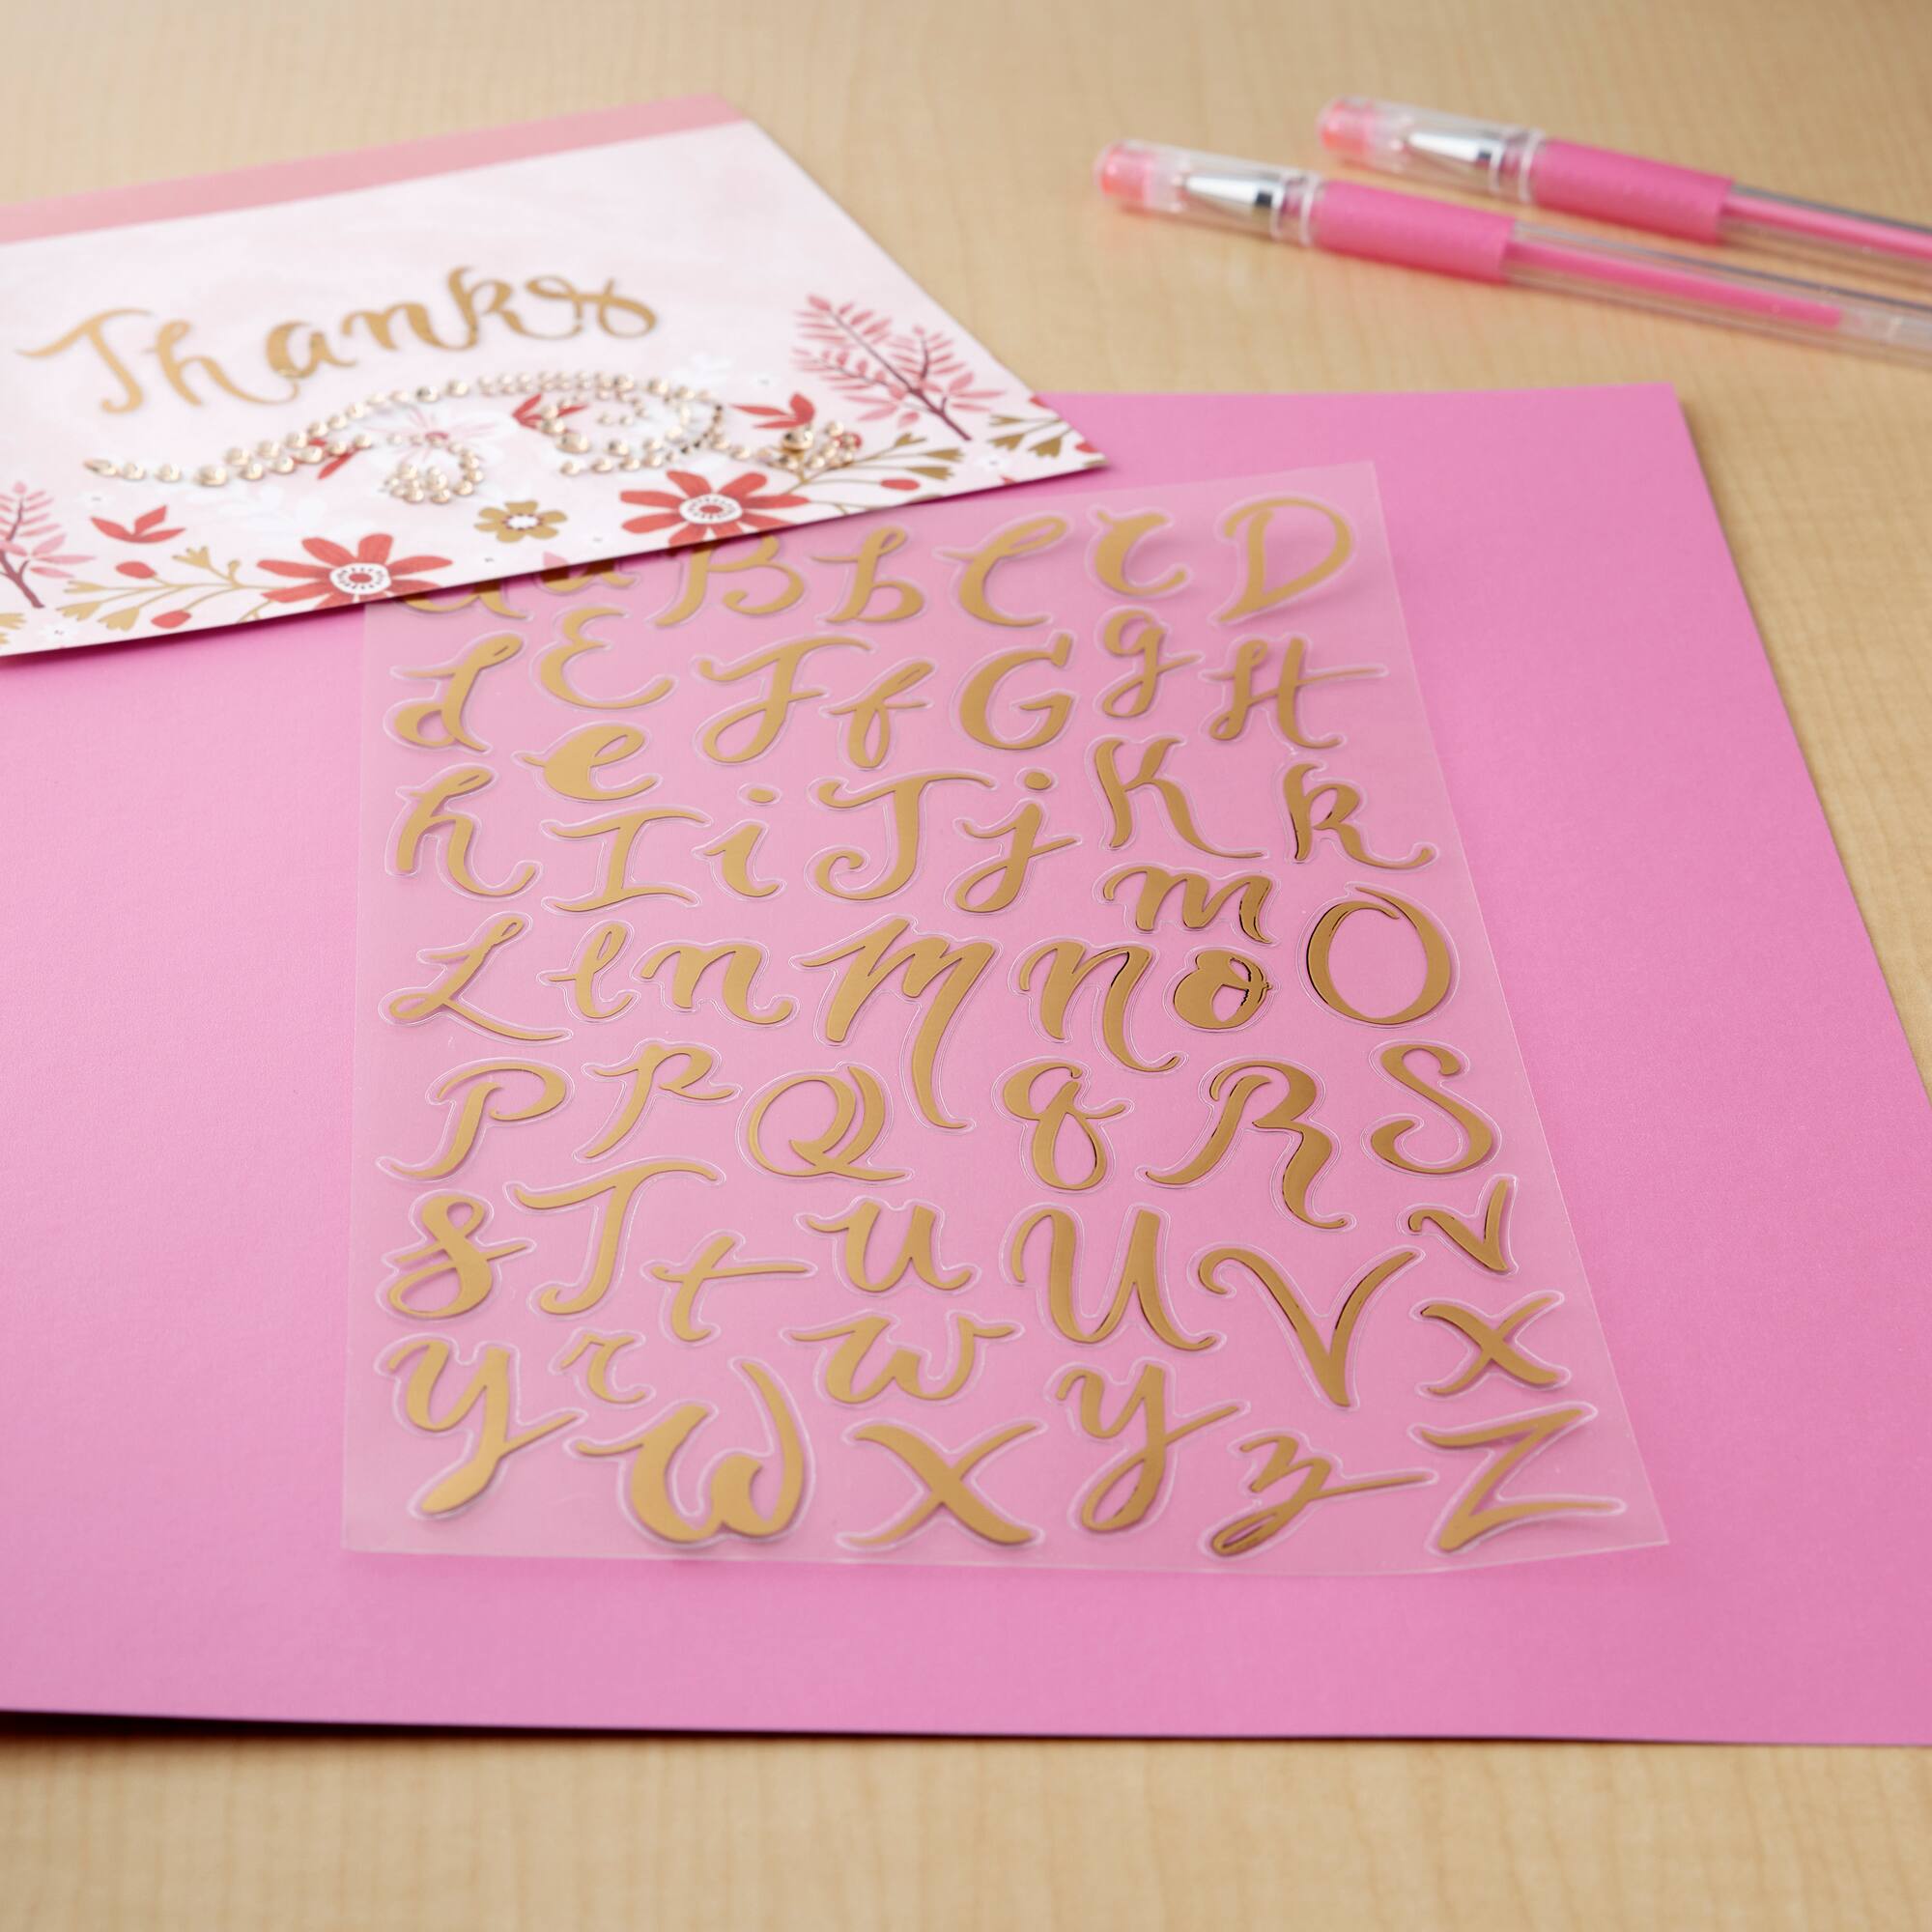 Thanks
a B b C c D
d E F f G g H
h e I i J j K k
L l n M n m o O
P p Q q R S
s T t u U V v
y r W w X y z Z x